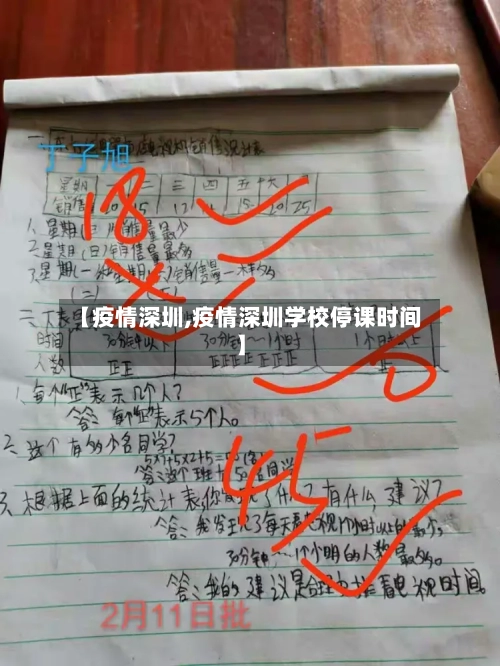 丁子旭
星期 一 二 三 四 五 六 日
销售 20 15 12 15 20 25
18
1.星期(日)销售量最少
2.星期(日)销售量最多
3.星期(一)和星期(二)销售量一样多
(二)
【疫情深圳,疫情深圳学校停课时间】
时间 30分钟以下 30分钟~1个时 1个时以上
人数 正正 正正正正正正 正
1.每个“正”表示几个人?
答:每个“正”表示5个人。
2.这个 有多少名同学?
答:这个班 名同学
45
3.根据上面的统计表,你 了什么?有什么建议?
答:我发现了每天看电视1个小时以上的最少,
30分钟~1个小时的人数最多。
答:我的建议是合理安排看电视时间。
2月11日批